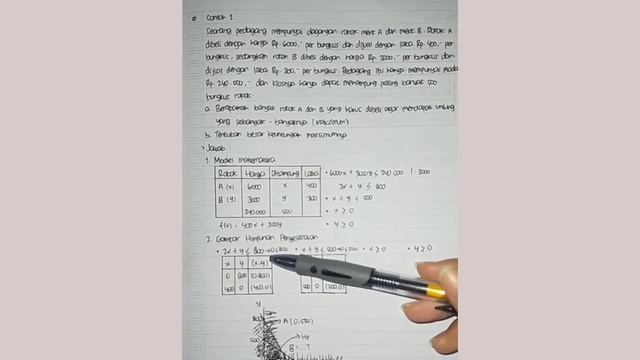 * Contoh 1
Seorang pedagang mempunyai dagangan rokok merk A dan merk B. Rokok A
dibeli dengan harga Rp 6000,- per bungkus dan dijual dengan laba Rp 400,- per
bungkus, sedangkan rokok B dibeli dengan harga Rp. 3000,- per bungkus dan
dijual dengan laba Rp. 300,- per bungkus. Pedagang itu hanya mempunyai modal
Rp. 240.000,- dan kiosnya hanya dapat menampung paling banyak 500
bungkus rokok.
a. Berapakah banyak rokok A dan B yang harus dibeli agar mendapat untung
yang sebanyak-banyaknya (maksimum)
b. Tentukan besar keuntungan maksimumnya
> Jawab:
1. Model matematika
Rokok Harga Ditampung Laba
A (x) 6000 x 400
B (y) 3000 y 300
240.000 500
f(x) = 400x + 300y
• 6000x + 3000y ≤ 240.000 | : 3000
2x + y ≤ 800
• x + y ≤ 500
• x ≥ 0
• y ≥ 0
2. Gambar Himpunan Penyelesaian
• 2x + y ≤ 800 • x + y ≤ 500 • x ≥ 0 • y ≥ 0
x y (x,y)
0 800 (0,800)
400 0 (400,0)
500 0 (500,0)
y
800
A (0,500)
500
Hp
B = ...?